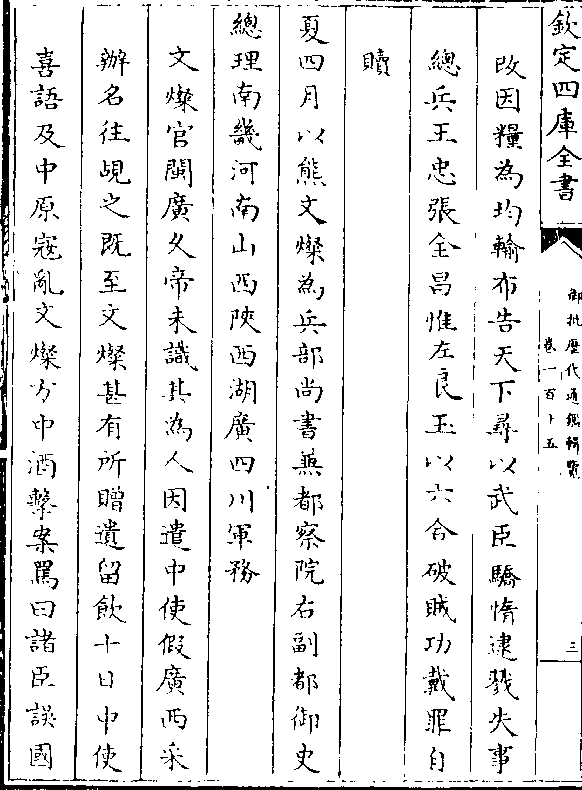 欽定四庫全書
御批歷代通鑑輯覽
卷一百十五
三
改因糧為均輸布告天下尋以武臣驕惰逮戮失事
總兵王忠張全昌惟左良玉以六合破賊功戴罪自
贖
夏四月以熊文燦為兵部尚書兼都察院右副都御史
總理南畿河南山西陜西湖廣四川軍務
文燦官閩廣久帝未識其為人因遣中使假廣西采
辦名往覘之既至文燦甚有所贈遺留飲十日中使
喜語及中原寇亂文燦方中酒擊案罵曰諸臣誤國